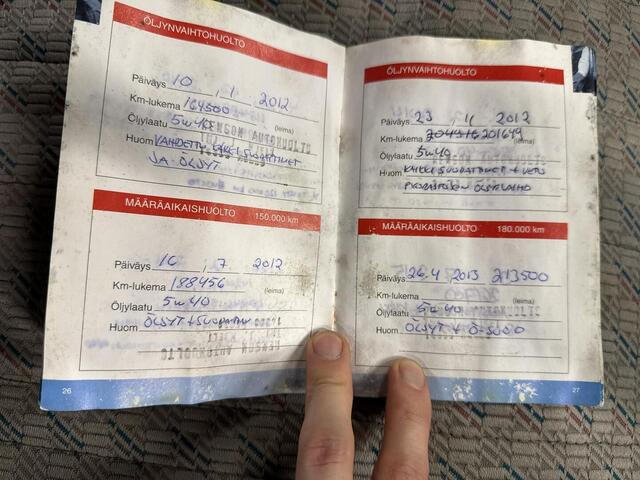 ÖLJYNVAIHTOHUOLTO
Päiväys 10 . 1 . 2012
Km-lukema 164500
Öljylaatu 5w40 (leima)
Huom VAHDETTU KAIKKI SUODATTIMET
JA ÖLJYT
MÄÄRÄAIKAISHUOLTO 150.000 km
Päiväys 16 . 7 2012
Km-lukema 188456
Öljylaatu 5w40 (leima)
Huom ÖLJYT + SUODATIN
26
ÖLJYNVAIHTOHUOLTO
Päiväys 23 11 2012
Km-lukema 201649
Öljylaatu 5w40 (leima)
Huom KAIKKI SUODATTIMET + VETO
MÄÄRÄAIKAISHUOLTO 180.000 km
Päiväys 26.4 2013 213500
Km-lukema
Öljylaatu 5w40 (leima)
Huom ÖLJYT + Ö-SUOD
27